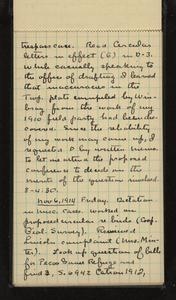 trespass case. Read Circular
letters in effect (G) in D-3.
While casually speaking to
the office of drafting I learned
that inaccuracies in the
Twp. plats compiled by
from the work of my
1910 field party had been dis-
covered. Since the reliability
of my work may come up, I
requested D by written memo.
to let me attend the proposed
conference to decide on the
merits of the question involved.
8-4:30.
Nov. 6, 1914 Friday. Dictation
in misc. cases. Worked on
proposed circular re bonds (Coop.
Geol. Survey). Received
Lincoln compliment (Mrs. Min-
ter). Look up question of bills
for Pecos Game Refuge and
 S. 6942 Oct 1912,